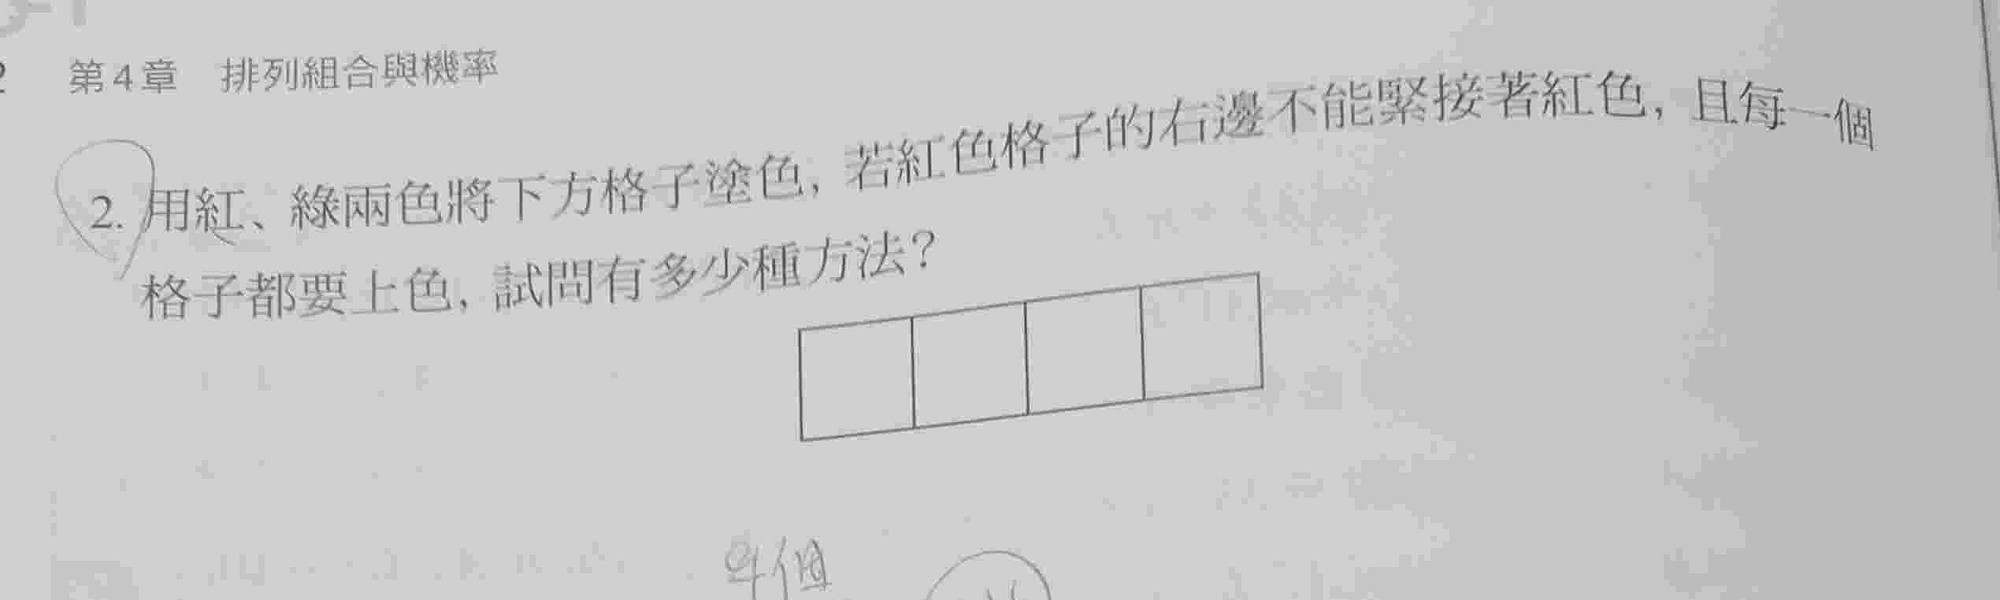 第4章 排列組合與機率
2. 用紅、綠兩色將下方格子塗色，若紅色格子的右邊不能緊接著紅色，且每一個
格子都要上色，試問有多少種方法？
個